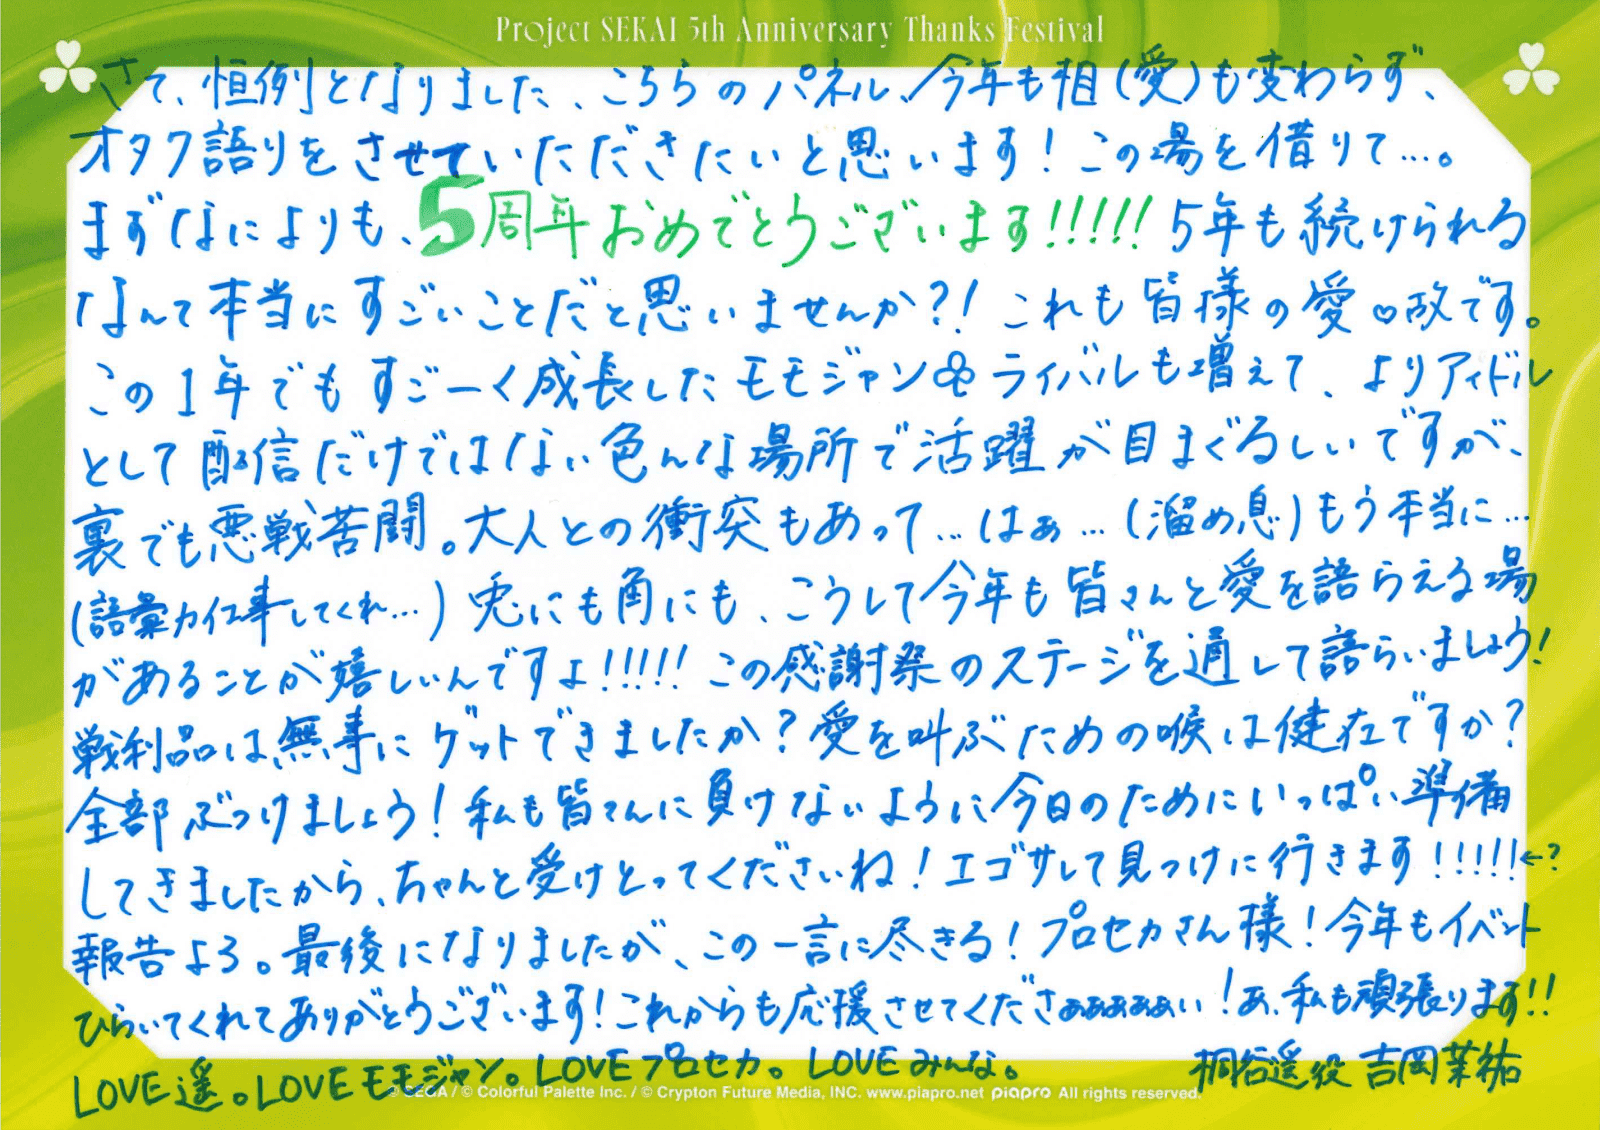 Project SEKAI 5th Anniversary Thanks Festival
さて、恒例となりました、こちらのパネル、今年も相(愛)も変わらず、
オタク語りをさせていただきたいと思います！この場を借りて…。
まずなによりも、5周年おめでとうございます!!!!! 5年も続けられる
なんて本当にすごいことだと思いませんか?! これも皆様の愛♡故です。
この1年でもすごーく成長したモモジャン♧ライバルも増えて、よりアイドル
として配信だけではない色んな場所で活躍が目まぐるしいですが、
裏でも悪戦苦闘。大人との衝突もあって…はぁ…(溜め息)もう本当に…
(語彙力仕事してくれ…) 兎にも角にも、こうして今年も皆さんと愛を語らえる場
があることが嬉しいんですよ!!!!! この感謝祭のステージを通して語らいましょう！
戦利品は無事にゲットできましたか？愛を叫ぶための喉は健在ですか？
全部ぶつけましょう！私も皆さんに負けないように今日のためにいっぱい準備
してきましたから、ちゃんと受けとってくださいね！エゴサして見つけに行きます!!!!!←?
報告よろ。最後になりましたが、この一言に尽きる！プロセカさん様！今年もイベント
ひらいてくれてありがとうございます！これからも応援させてくださぁぁぁぁぁい！あ、私も頑張ります!!
LOVE遥。LOVEモモジャン。LOVEプロセカ。LOVEみんな。 桐谷遥役 吉岡茉祐
© SEGA / © Colorful Palette Inc. / © Crypton Future Media, INC. www.piapro.net piapro All rights reserved.